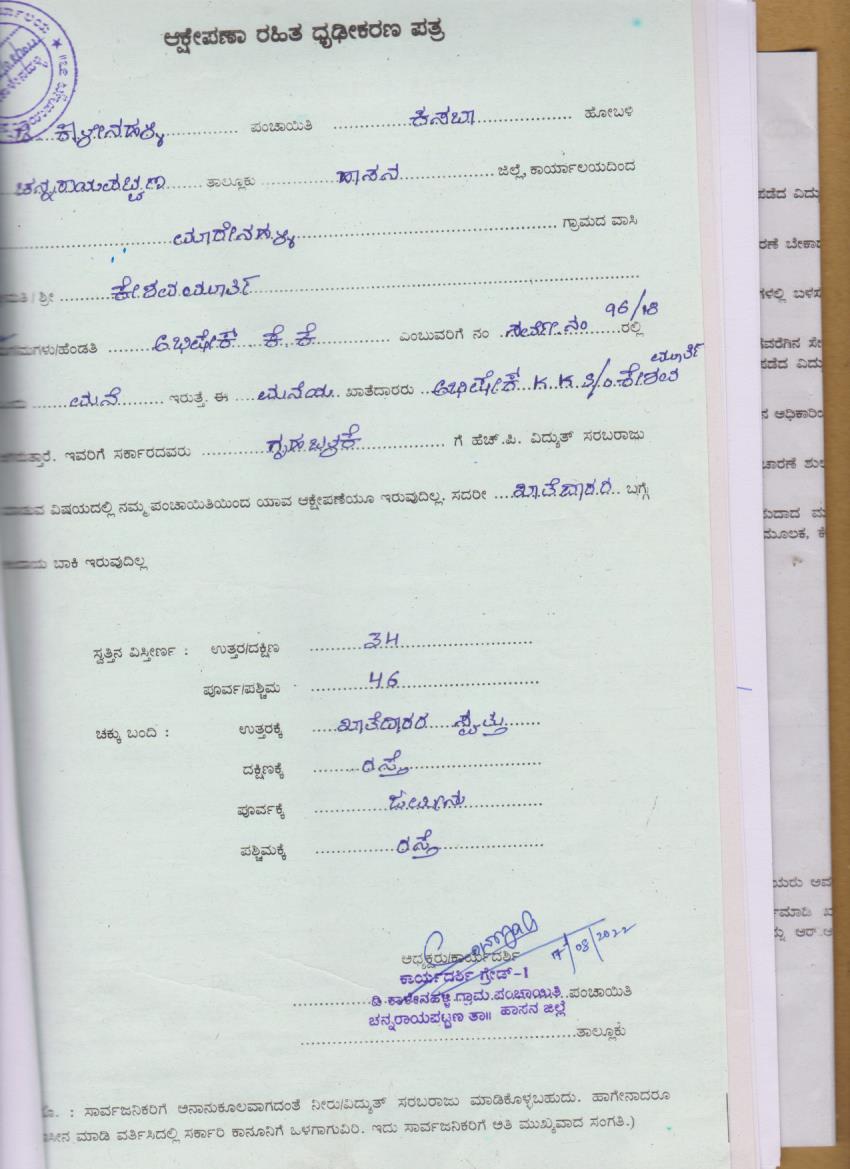 ಆಕ್ಷೇಪಣಾ ರಹಿತ ಧೃಢೀಕರಣ ಪತ್ರ
ಡಿ ಕಾಳೇನಹಳ್ಳಿ ಪಂಚಾಯಿತಿ ಕಸಬಾ ಹೋಬಳಿ
ಚನ್ನರಾಯಪಟ್ಟಣ ತಾಲ್ಲೂಕು ಹಾಸನ ಜಿಲ್ಲೆ, ಕಾರ್ಯಾಲಯದಿಂದ
ಮಾದೇನಹಳ್ಳಿ ಗ್ರಾಮದ ವಾಸಿ
ಮತಿ / ಶ್ರೀ ಕೇಶವಮೂರ್ತಿ
ಮಗಳು/ಹೆಂಡತಿ ಅಭಿಷೇಕ್ ಕೆ. ಕೆ ಎಂಬುವರಿಗೆ ನಂ ಸರ್ವೇ ನಂ 96/18 ರಲ್ಲಿ
ಮನೆ ಇರುತ್ತೆ. ಈ ಮನೆಯ ಖಾತೆದಾರರು ಅಭಿಷೇಕ್ K.K S/o ಕೇಶವ ಮೂರ್ತಿ
ಇವರಿಗೆ ಸರ್ಕಾರದವರು ಗೃಹಬಳಕೆ ಗೆ ಹೆಚ್.ಪಿ. ವಿದ್ಯುತ್ ಸರಬರಾಜು
ವಿಷಯದಲ್ಲಿ ನಮ್ಮ ಪಂಚಾಯಿತಿಯಿಂದ ಯಾವ ಆಕ್ಷೇಪಣೆಯೂ ಇರುವುದಿಲ್ಲ. ಸದರೀ ಖಾತೆದಾರರ ಬಗ್ಗೆ
ಬಾಕಿ ಇರುವುದಿಲ್ಲ
ಸ್ವತ್ತಿನ ವಿಸ್ತೀರ್ಣ : ಉತ್ತರ/ದಕ್ಷಿಣ 34
ಪೂರ್ವ/ಪಶ್ಚಿಮ 46
ಚಕ್ಕು ಬಂದಿ : ಉತ್ತರಕ್ಕೆ ಖಾತೆದಾರರ ಸ್ವತ್ತು
ದಕ್ಷಿಣಕ್ಕೆ ರಸ್ತೆ
ಪೂರ್ವಕ್ಕೆ ಜಮೀನು
ಪಶ್ಚಿಮಕ್ಕೆ ರಸ್ತೆ
17/08/2022
ಅಧ್ಯಕ್ಷರು/ಕಾರ್ಯದರ್ಶಿ
ಕಾರ್ಯದರ್ಶಿ ಗ್ರೇಡ್-1
ಡಿ ಕಾಳೇನಹಳ್ಳಿ ಗ್ರಾಮ ಪಂಚಾಯಿತಿ ಪಂಚಾಯಿತಿ
ಚನ್ನರಾಯಪಟ್ಟಣ ತಾ॥ ಹಾಸನ ಜಿಲ್ಲೆ
ತಾಲ್ಲೂಕು
: ಸಾರ್ವಜನಿಕರಿಗೆ ಅನಾನುಕೂಲವಾಗದಂತೆ ನೀರು/ವಿದ್ಯುತ್ ಸರಬರಾಜು ಮಾಡಿಕೊಳ್ಳಬಹುದು. ಹಾಗೇನಾದರೂ
ಮಾಡಿ ವರ್ತಿಸಿದಲ್ಲಿ ಸರ್ಕಾರಿ ಕಾನೂನಿಗೆ ಒಳಗಾಗುವಿರಿ. ಇದು ಸಾರ್ವಜನಿಕರಿಗೆ ಅತಿ ಮುಖ್ಯವಾದ ಸಂಗತಿ.)